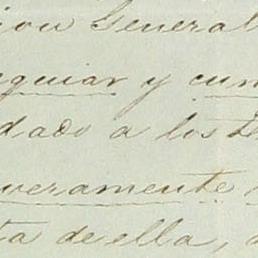 ion General
eguiar y cum
dado a los te
veramente
ta de ella, a